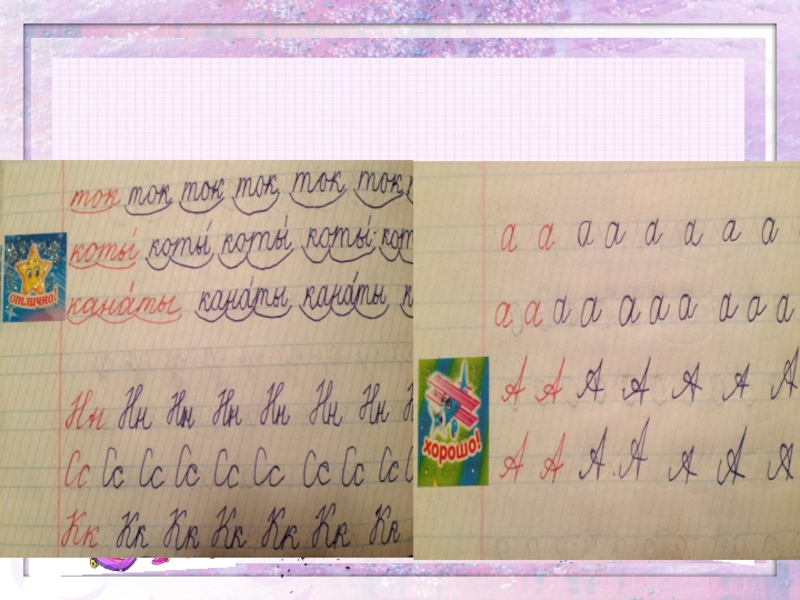 ток ток ток ток ток ток
коты́ коты́ коты́ коты́ кот
отлично!
кана́ты кана́ты кана́ты к
Нн Нн Нн Нн Нн Нн Нн Н
Сс Сс Сс Сс Сс Сс Сс Сс Сс С
Кк Кк Кк Кк Кк Кк Кк
а а а а а а а а
а а а а а а а а а а
А А А А А А А
хорошо!
А А А А А А А